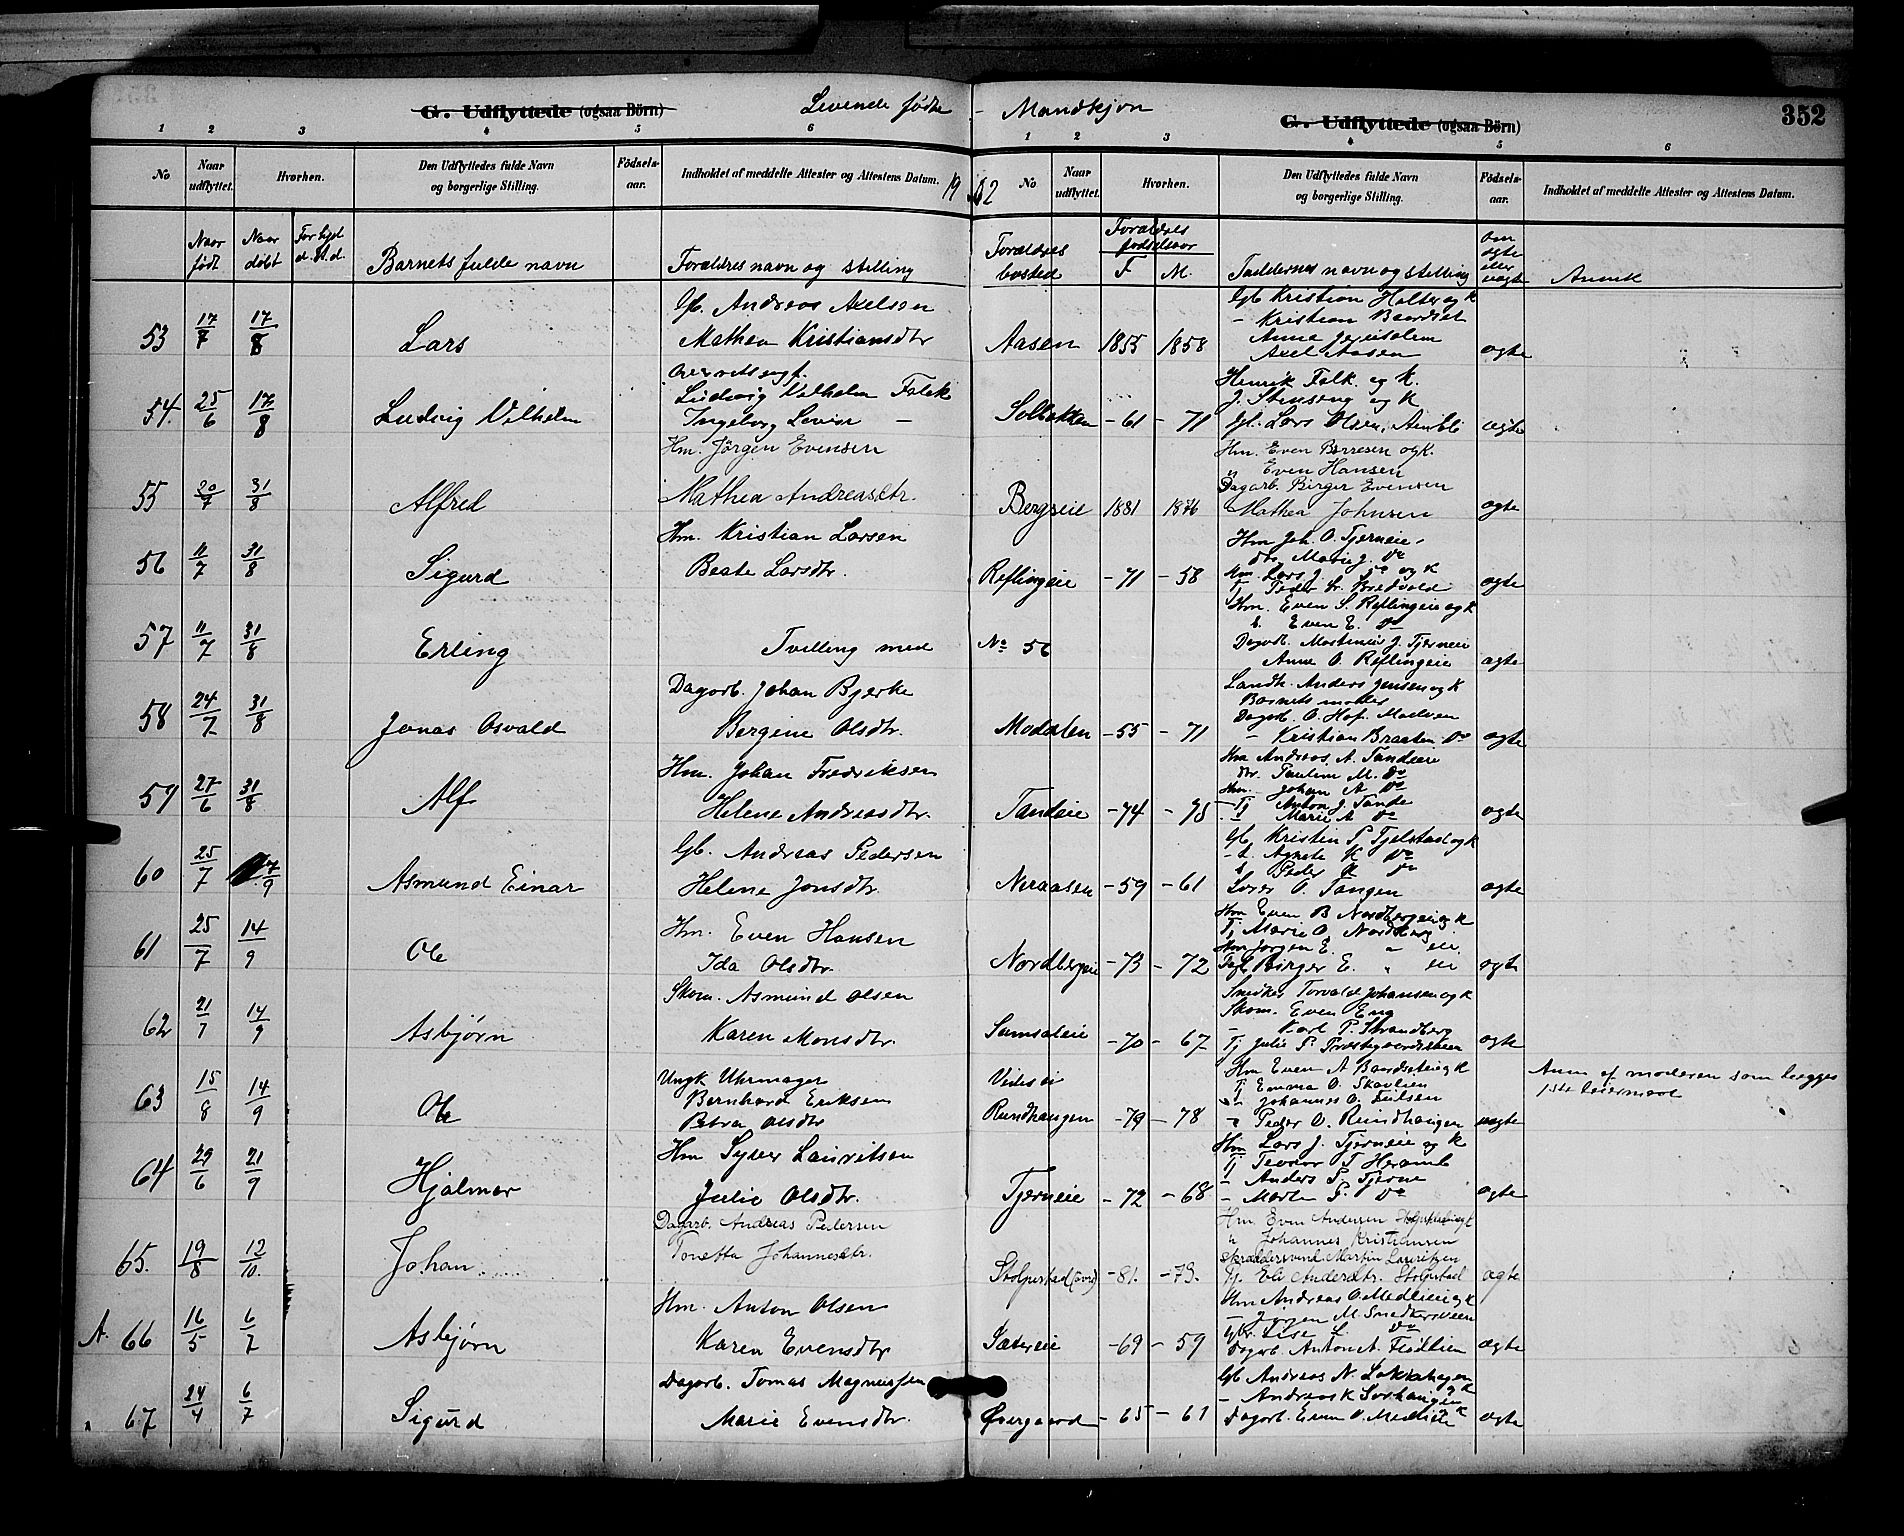 G. Udflyttede (ogsaa Börn)
Levende fødte - Mandkjøn
G. Udflyttede (ogsaa Börn)
352
1 2 3 4 5 6
1 2 3 4 5 6
No
Naar udflyttet.
Hvorhen.
Den Udflyttedes fulde Navn og borgerlige Stilling.
Födsels-aar.
Indholdet af meddelte Attester og Attestens Datum.
1902
No
Naar udflyttet.
Hvorhen.
Den Udflyttedes fulde Navn og borgerlige Stilling.
Födsels-aar.
Indholdet af meddelte Attester og Attestens Datum.
Naar født
Naar døbt
Barnets fulde navn
Forældres navn og stilling
Forældres bosted
Forældres fødselsaar
F. M.
Faddernes navn og stilling
Om ægte eller uægte
Anmk
53 17/7 17/8 Lars
Gb. Andreas Axelsen
Mathea Kristiansdtr
Aasen 1855 1858
Gb Kristian Holter og k
- Kristian Baardset
Anne Jerusalem
Axel Aasen
ægte
54. 25/6 17/8 Ludvig Vilhelm
Overretssagf.
Ludvig Vilhelm Falck
Ingeborg Levine -
Solbakken -61 -71
Henrik Falk og K.
J. Stenseng og K
Gb. Lars Olsen, Ambli
ægte
55 20/7 31/8 Alfred
Hm. Jörgen Evensen
Mathea Andreasdtr.
Bergseie 1881 1876
Hm. Even Børresen og k.
" Even Hansen
Dagarb. Birger Evensen
Mathea Johnsen
ægte
56 11/7 31/8 Sigurd
Hm. Kristian Larsen
Beate Larsdtr.
Reflingeie -71 -58
Hm Joh. O. Tjerneie,
dtr. Marie J. do
Hm. Lars J. do og K
Tj Peder Bredvold
ægte
57 11/7 31/8 Erling
Tvilling med No 56
Hm. Even S. Reflingeie og k
s. Even E. do
Dagarb. Martinius J. Tjerneie
Anne O. Reflingeie
ægte
58 24/7 31/8 Jonas Osvald
Dagarb. Johan Bjerke
Bergine Olsdtr.
Modalen -55 -71
Landh. Anders Jensen og k
Barnets moder
Dagarb. O. Hof. Moelven
- Kristian Braaten do
ægte
59 27/6 31/8 Alf
Hm. Johan Fredriksen
Helene Andreasdtr.
Tandeie -74 -75
Hm Andreas A. Tandeie
dtr. Pauline M. do
Hm. Johan A do
Tj Anton J. Tande
- Marie A do
ægte
60 25/7 7/9 Asmund Einar
Gb. Andreas Pedersen
Helene Jonsdtr.
Neraasen -59 -61
Gb Kristin P. Tjelstad og k
- d. Agnete K do
s Peder K do
Lars O. Tangen
ægte
61 25/7 14/9 Ole
Hm. Even Hansen
Ida Olsdtr.
Nordbergeie -73 -72
Hm Even B Nordbergeie og k
Tj Marie O. Nordberg
Hm Jørgen E. " eie
Birger E. " eie
ægte
62 21/7 14/9 Asbjørn
Skom. Asmund Olsen
Karen Monsdtr.
Sumsateie -70 -67
Snedker Torvald Johansen og k
Skom. Even Eng
- Karl P. Strandberg
Tj Julie P. Præstegaardseien
ægte
63 15/8 14/9 Ole
Ungk Uhrmager
Bernhard Eriksen
Petra Olsdtr
Rundhaugen -79 -78
Hm Even A Baardseteie og k
Tj Emma O. Skavlien
" Johannes O.
" Peder O. Rundhaugen
uægte
Anm af moderen som begges 1ste leiermaal
64 29/6 21/9 Hjalmar
Hm Syver Lauritsen
Julie Olsdtr.
Tjerneie -72 -68
Hm Lars J. Tjerneie og k
Tj Teodor T Heramb
- Anders P. Tjerne
- Marte P. do
ægte
65. 19/8 12/10. Johan
Dagarb. Andreas Pedersen
Tonetta Johannesdtr.
Stolpestad (øvre) -81. -79.
Hm. Even Andersen Stolpestadeie og k
" Johannes Kristiansen
Skræddersvend Martin Lauritsen
Tj. Eli Andersdtr. Stolpestad
ægte
A. 66 16/5 6/7 Asbjørn
Hm. Anton Olsen
Karen Evensdtr
Sætereie -69 -59
Hm Andreas O. Medlieie og k
- Jørgen M. Snedkersveen
Gbr. Lise L. do
Dagarb. Anton A. Fladlien
ægte
" 67 24/4 6/7 Sigurd
Dagarb. Tomas Magnussen
Marie Evensdtr.
Øvergaard -65 -61
Gb Andreas N. Løkkehagen og k
- Andreas K Sørhaugen og k
Dagarb. Even O. Medlieie
ægte